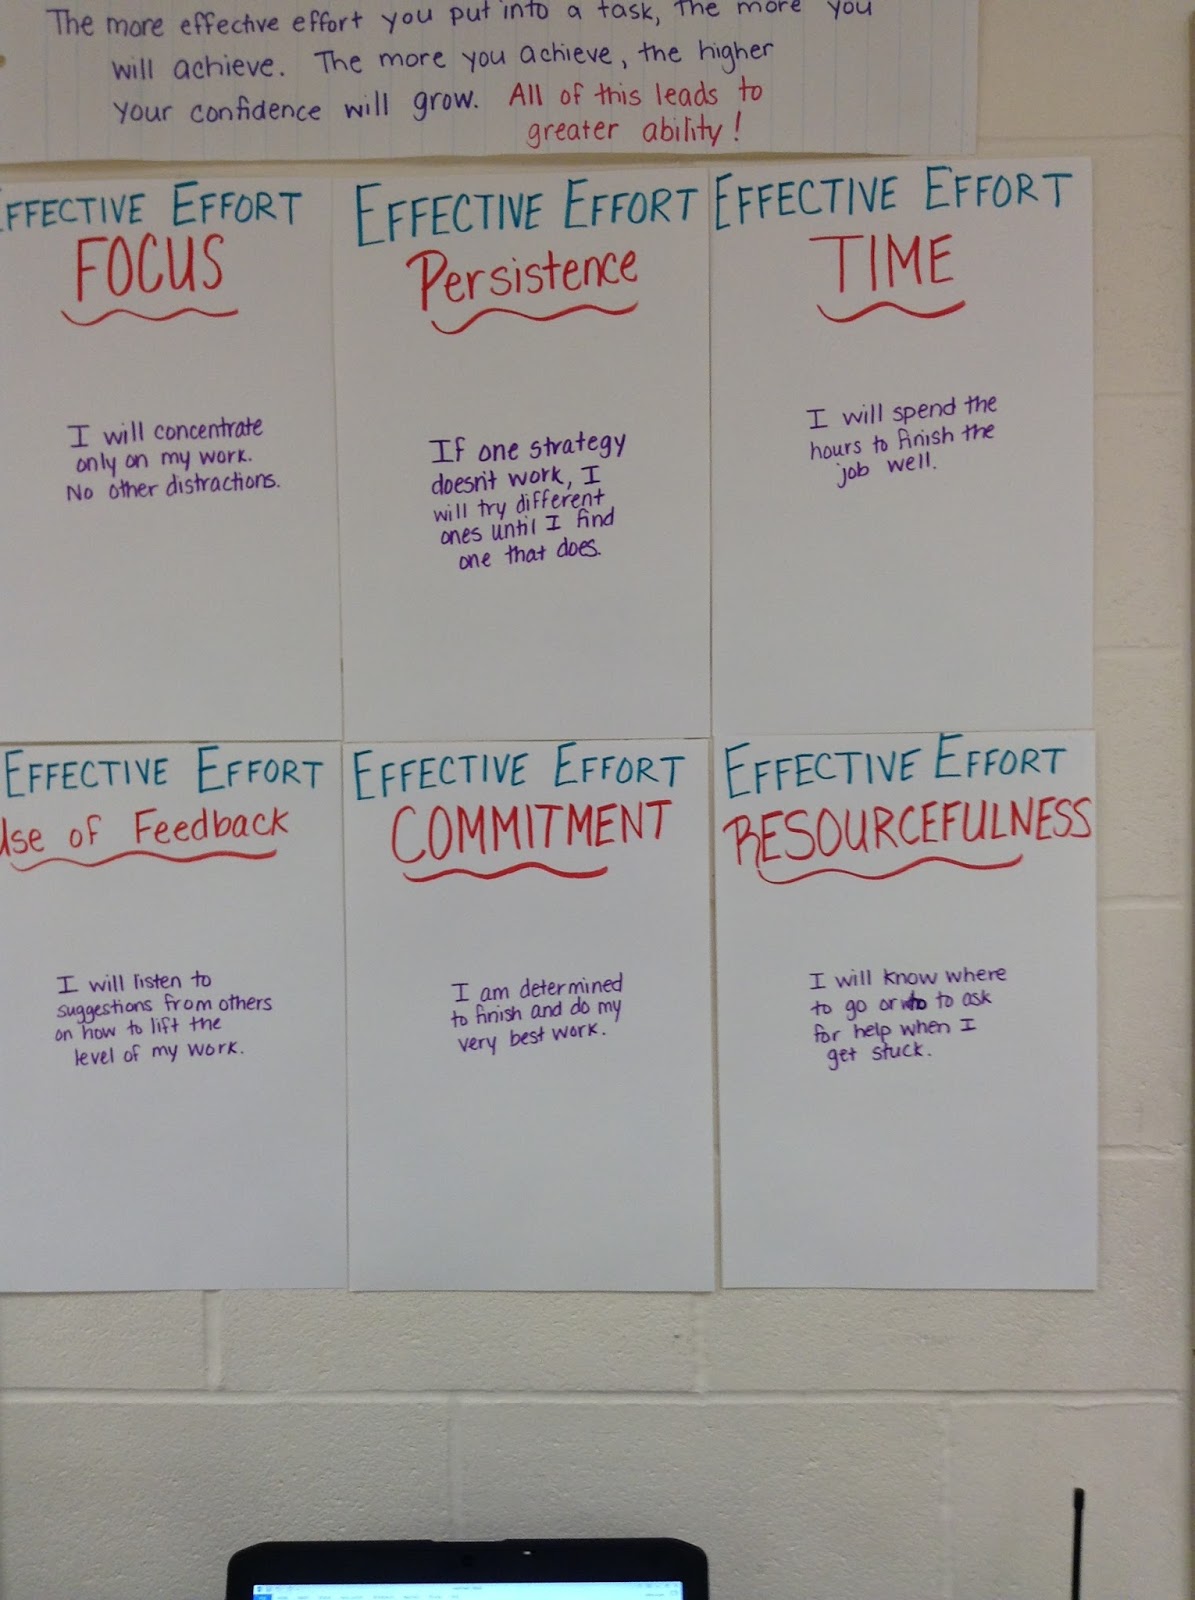 The more effective effort you put into a task, the more you
will achieve. The more you achieve, the higher
your confidence will grow. All of this leads to
greater ability!
EFFECTIVE EFFORT
FOCUS
I will concentrate
only on my work.
No other distractions.
EFFECTIVE EFFORT
Persistence
If one strategy
doesn't work, I
will try different
ones until I find
one that does.
EFFECTIVE EFFORT
TIME
I will spend the
hours to finish the
job well.
EFFECTIVE EFFORT
Use of Feedback
I will listen to
suggestions from others
on how to lift the
level of my work.
EFFECTIVE EFFORT
COMMITMENT
I am determined
to finish and do my
very best work.
EFFECTIVE EFFORT
RESOURCEFULNESS
I will know where
to go or to ask
for help when I
get stuck.